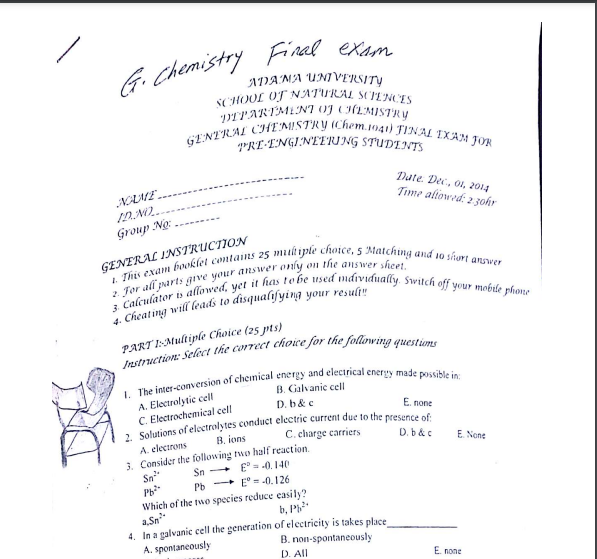 G. Chemistry Final exam
ADAMA UNIVERSITY
SCHOOL OF NATURAL SCIENCES
DEPARTMENT OF CHEMISTRY
GENERAL CHEMISTRY (Chem.1041) FINAL EXAM FOR
PRE-ENGINEERING STUDENTS
Date: Dec., 01, 2014
Time allowed: 2:30hr
NAME
ID.NO
Group No:
GENERAL INSTRUCTION
1. This exam booklet contains 25 multiple choice, 5 Matching and 10 short answer
2. For all parts give your answer only on the answer sheet.
3. Calculator is allowed, yet it has to be used individually. Switch off your mobile phone
4. Cheating will leads to disqualifying your result!!
PART I:-Multiple Choice (25 pts)
Instruction: Select the correct choice for the following questions
1. The inter-conversion of chemical energy and electrical energy made possible in:
A. Electrolytic cell B. Galvanic cell
C. Electrochemical cell D. b & c E. none
2. Solutions of electrolytes conduct electric current due to the presence of:
A. electrons B. ions C. charge carriers D. b & c E. None
3. Consider the following two half reaction.
Sn²⁺ Sn → E° = -0.140
Pb²⁺ Pb → E° = -0.126
Which of the two species reduce easily?
a, Sn²⁺ b, Pb²⁺
4. In a galvanic cell the generation of electricity is takes place
A. spontaneously B. non-spontaneously
D. All E. none